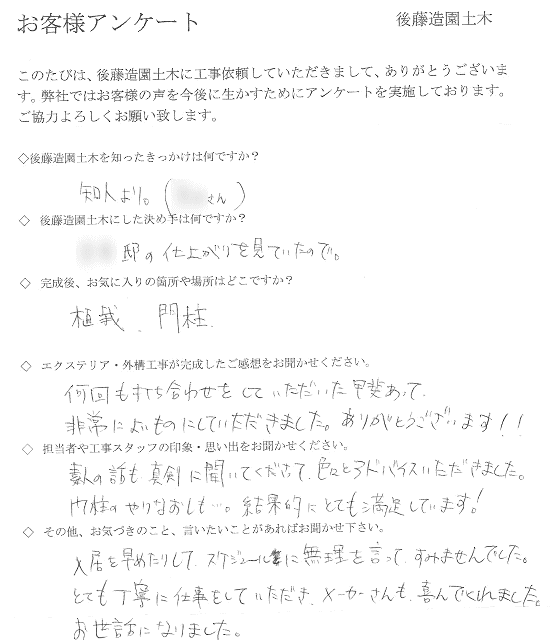 お客様アンケート
後藤造園土木
このたびは、後藤造園土木に工事依頼していただきまして、ありがとうございま
す。弊社ではお客様の声を今後に生かすためにアンケートを実施しております。
ご協力よろしくお願い致します。
◇後藤造園土木を知ったきっかけは何ですか？
知人より。( さん)
◇ 後藤造園土木にした決め手は何ですか？
邸の仕上がりを見ていたので。
◇ 完成後、お気に入りの箇所や場所はどこですか？
植栽、門柱
◇ エクステリア・外構工事が完成したご感想をお聞かせください。
何回も打ち合わせをしていただいた甲斐あって、
非常によいものにしていただきました。ありがとうございます！！
◇ 担当者や工事スタッフの印象・思い出をお聞かせください。
素人の話も真剣に聞いてくださって、色々とアドバイスいただきました。
門柱のやりなおしも…。結果的にとても満足しています！
◇ その他、お気づきのこと、言いたいことがあればお聞かせ下さい。
入居を早めたりして、スケジュールに無理を言って、すみませんでした。
とても丁寧に仕事をしていただき、メーカーさんも、喜んでくれました。
お世話になりました。